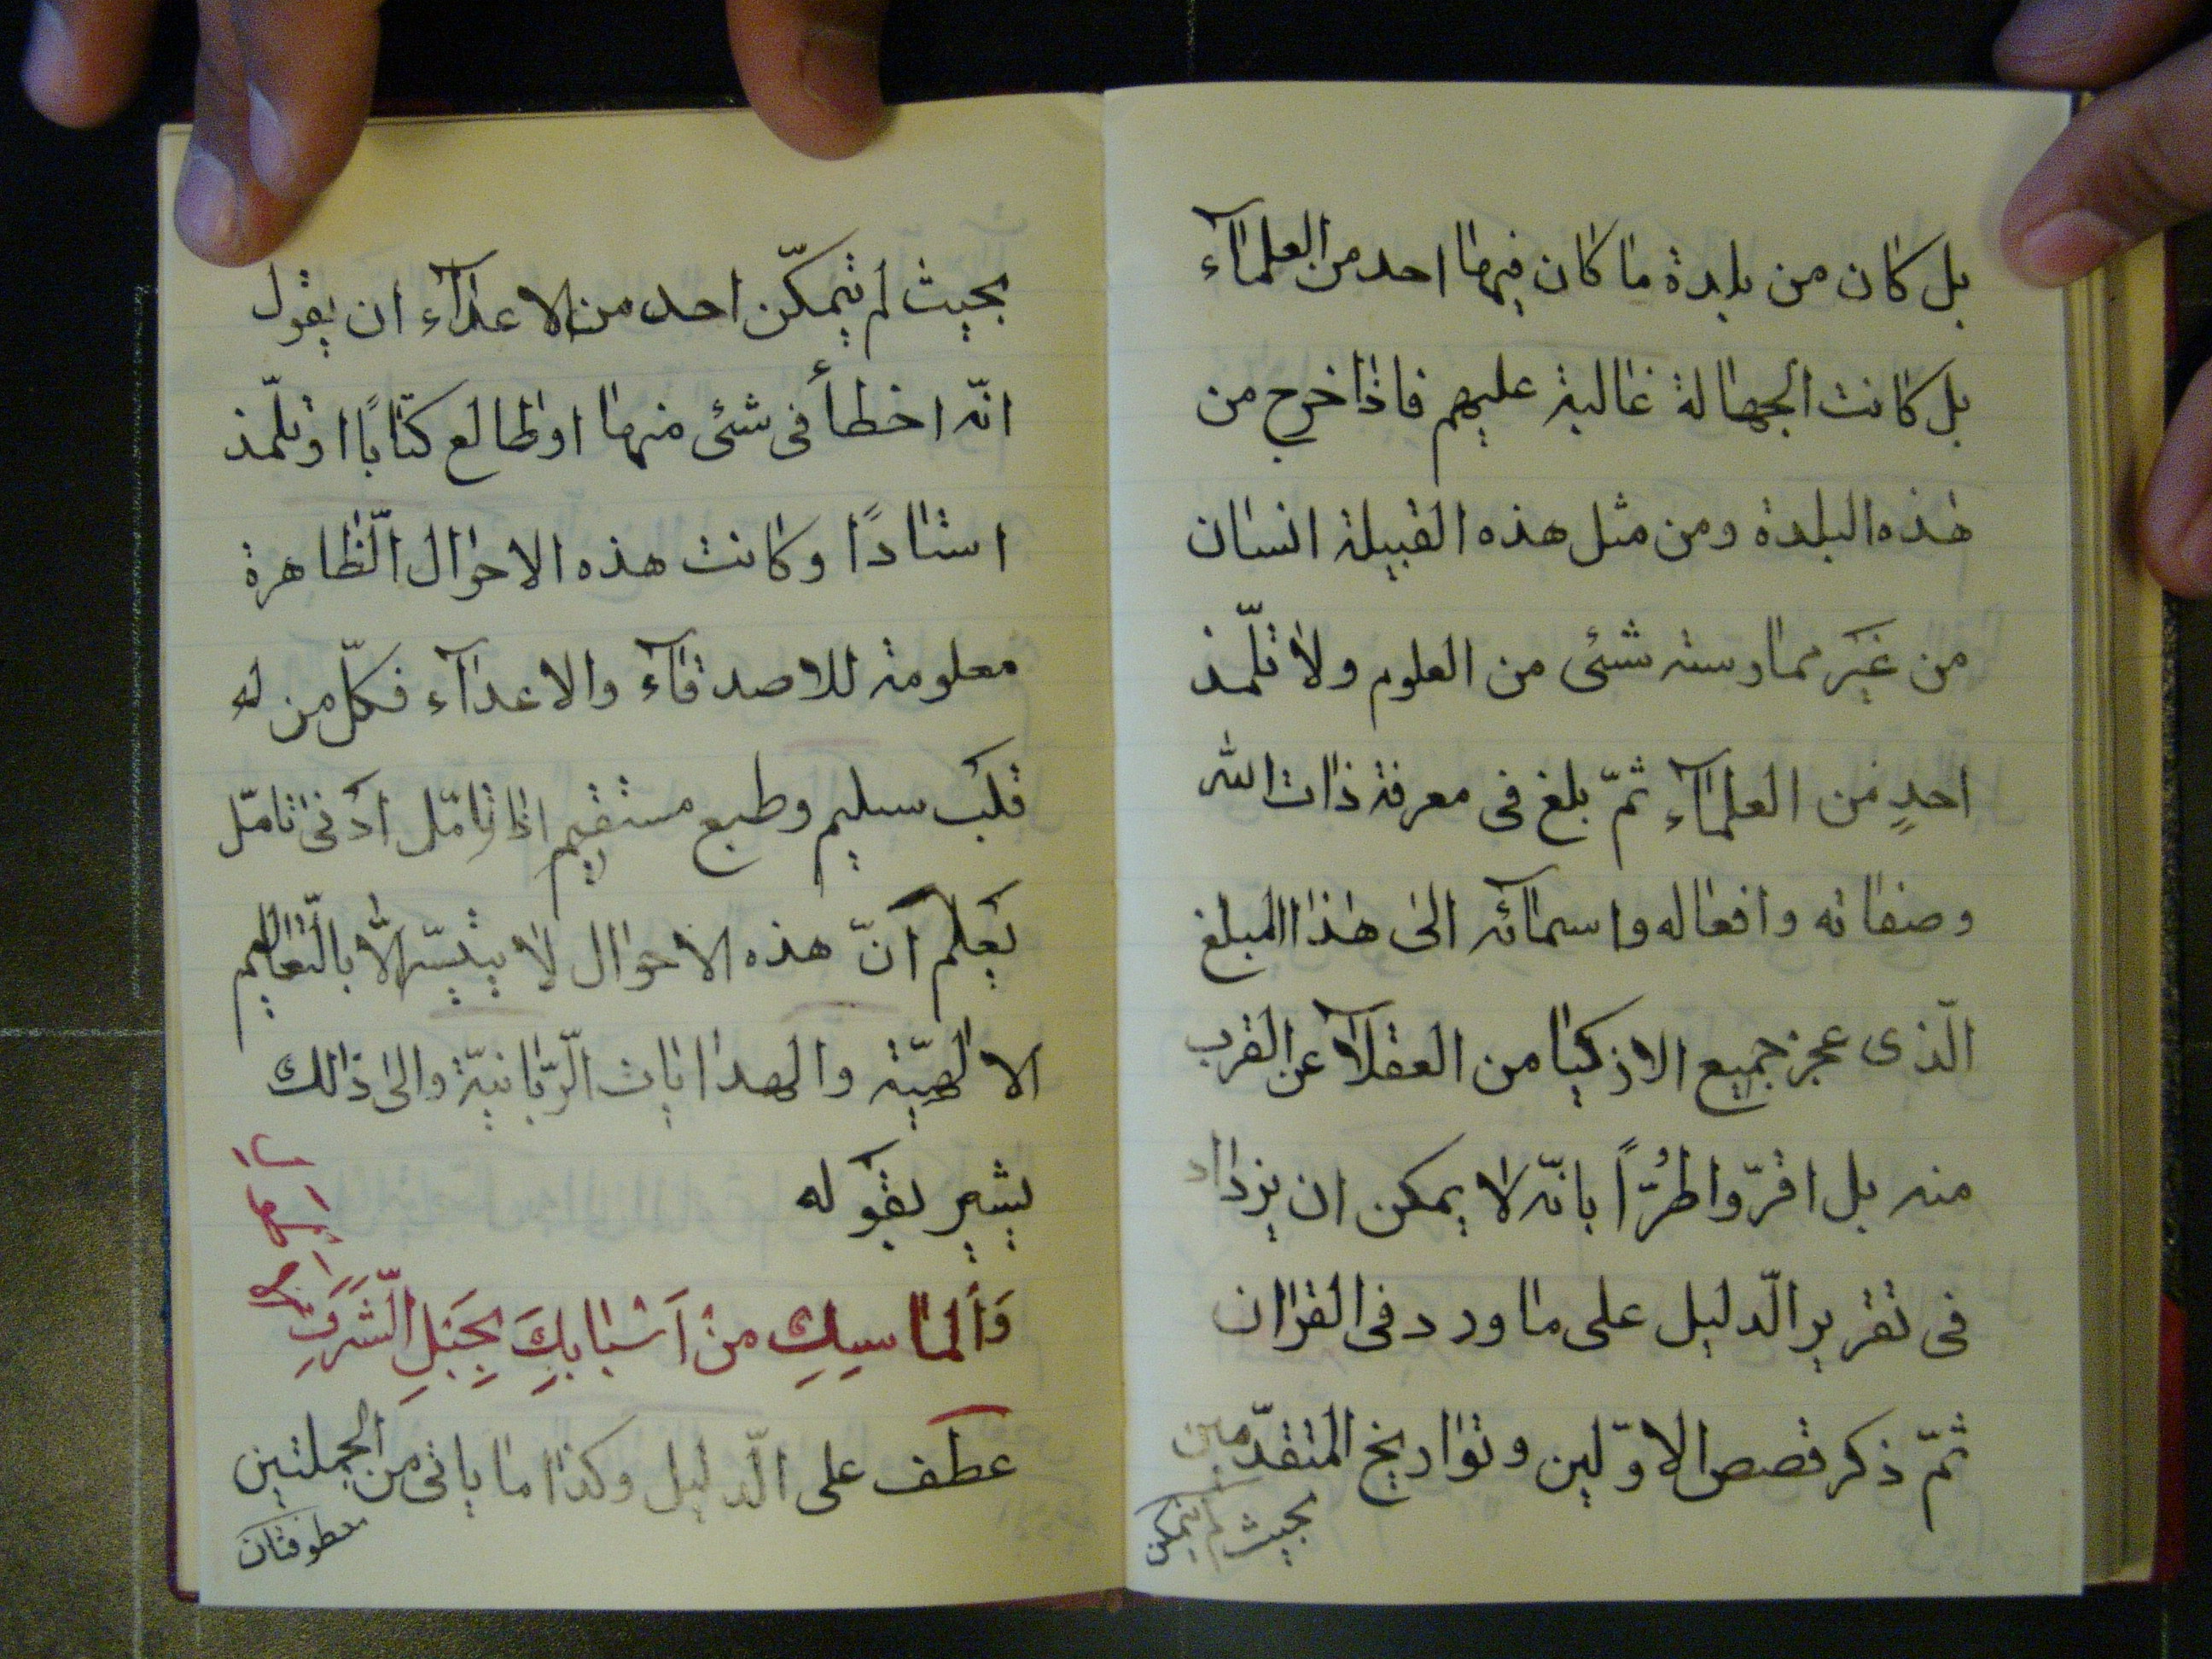 بل كان من بلدة ما كان فيها احد من العلمآء
بل كانت الجهالة غالبة عليهم فاذا خرج من
هذه البلدة ومن مثل هذه القبيلة انسان
من غير ممارسته شئى من العلوم ولا تلّمذ
احدٍ من العلمآء ثمّ بلغ فى معرفة ذات الله
وصفاته وافعاله واسمآئه الى هذا المبلغ
الّذى عجز جميع الاذكيا من العقلآ عن القرب
منه بل اقرّوا طُرّاً بانّه لا يمكن ان يزداد
فى تقرير الّدليل على ما ورد فى القران
ثمّ ذكر قصص الاوّلين وتواريخ المتقدّمين
بحيث لم يتمكن
بحيث لم يتمكّن احد من الاعدآء ان يقول
انّه اخطأ فى شئى منها او طالع كتابًا او تلّمذ
استادًا وكانت هذه الاحوال الّظاهرة
معلومة للاصدقآء والاعدآء فكلّ من له
قلب سليم وطبع مستقيم اذا تامّل ادنى تامّل
يعلم انّ هذه الاحوال لا يتيسّر الّا بالّتعاليم
الالهيّة والهدايات الّربّانيّة والى ذالك
يشير بقوله
وَالماسِكِ منْ اَسْبابِكَ بِحَبَلِ الّشَرَفِ
عطف على الّدليل وكذا ما ياتى من الجملتين
معطوفتان